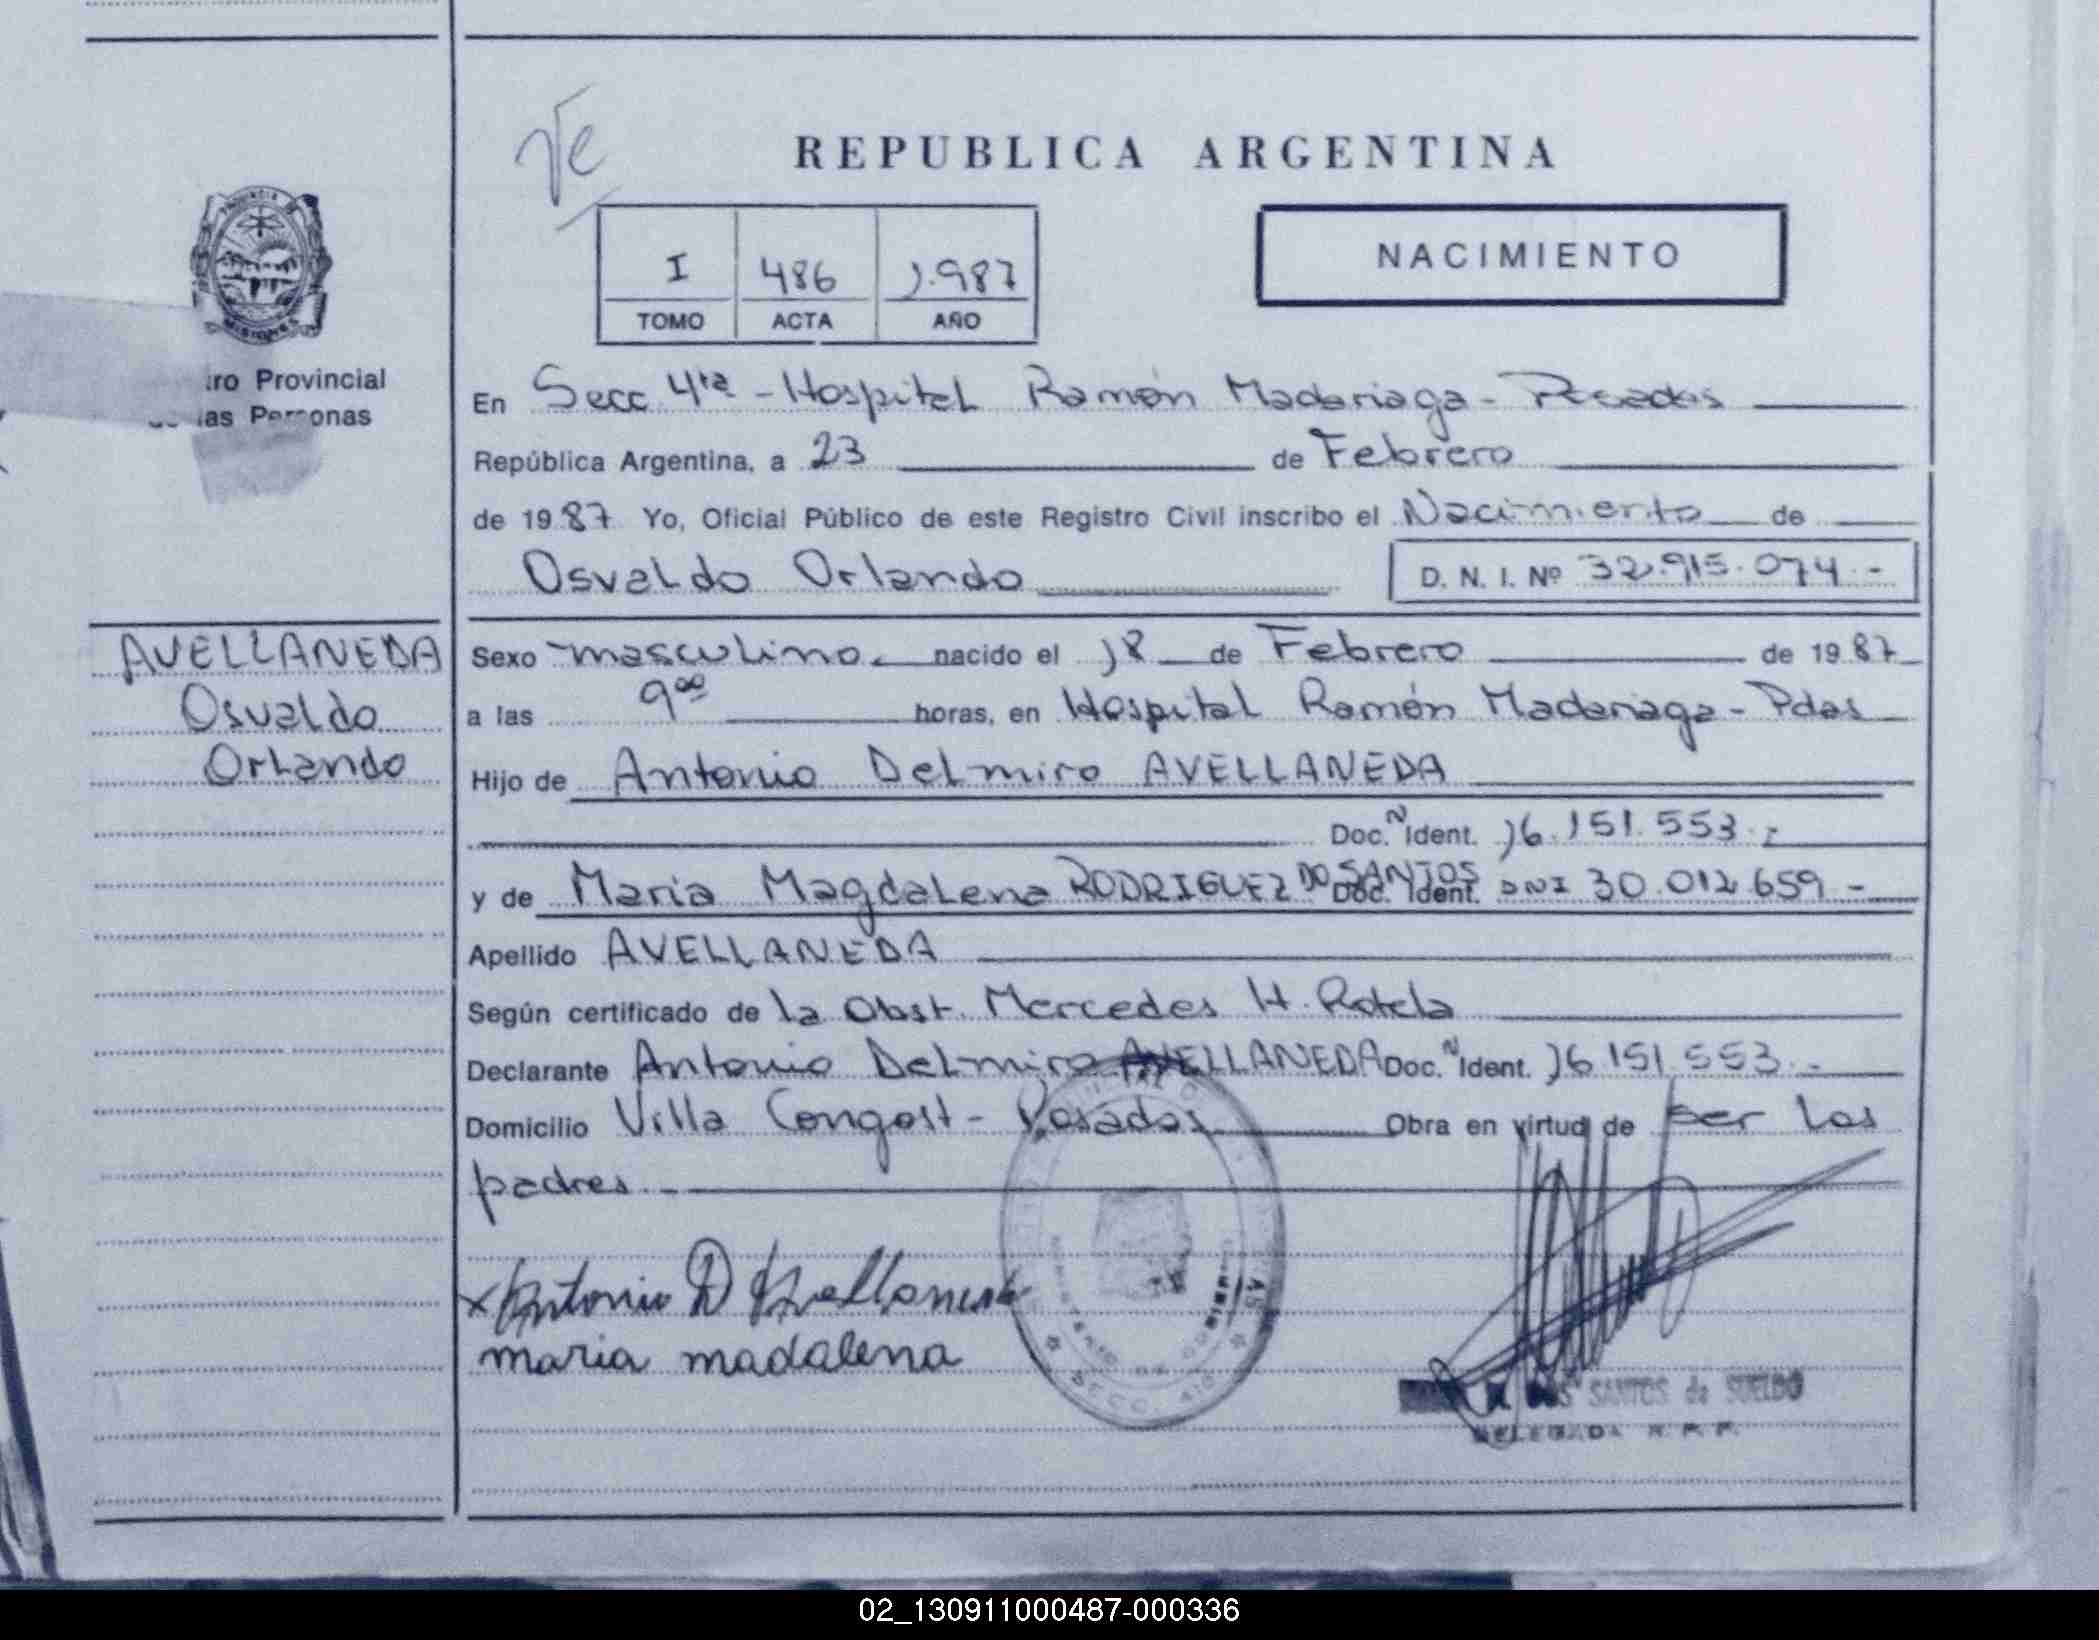 REPUBLICA ARGENTINA
NACIMIENTO
I 486 1.987
TOMO ACTA AÑO
MISIONES
ro Provincial
las Personas
En Secc 4ta - Hospital Ramón Madariaga - Posadas
República Argentina, a 23 de Febrero
de 1987 Yo, Oficial Público de este Registro Civil inscribo el Nacimiento de
Osvaldo Orlando D. N. I. Nº 32.915.074.-
AVELLANEDA
Osvaldo
Orlando
Sexo masculino. nacido el 18 de Febrero de 1987
a las 9 00 horas, en Hospital Ramón Madariaga - Pdas
Hijo de Antonio Delmiro AVELLANEDA
Doc. N Ident. 16.151.553.-
y de Maria Magdalena RODRIGUEZ DO SANTOS Doc. Ident. DNI 30.012.659.-
Apellido AVELLANEDA
Según certificado de la Obst. Mercedes H. Rotela
Declarante Antonio Delmiro AVELLANEDA Doc. N Ident. 16.151.553.-
Domicilio Villa Congost - Posadas Obra en virtud de ser los
padres.-
x Antonio D Avellaneda
maria madalena
SECC. 4ta
SANTOS de SUELDO
DELEGADA R. P. P.
02_130911000487-000336